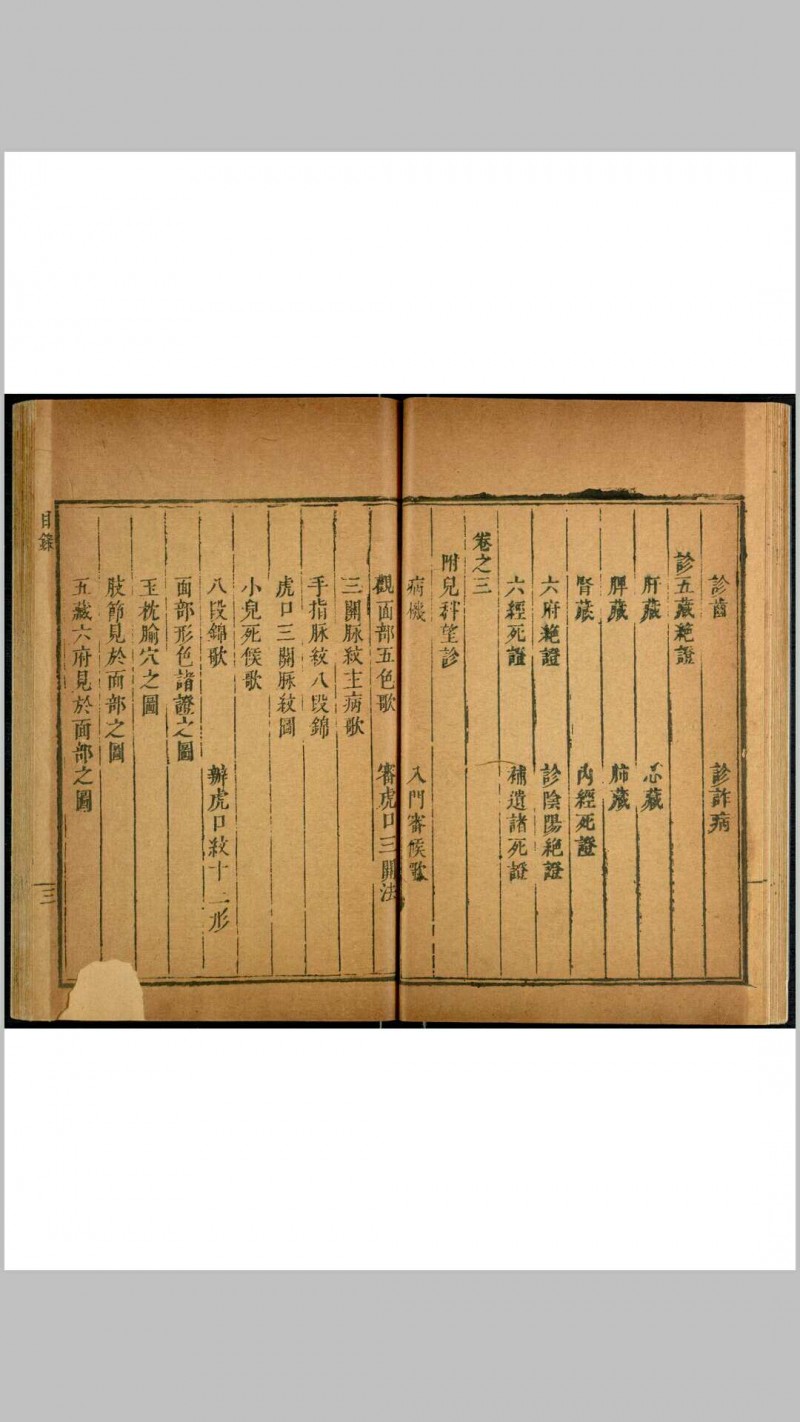 診齒　診詐病
診五藏絕證
肝藏　心藏
脾藏　肺藏
腎藏　內經死證
六府絕證　診陰陽絕證
六經死證　補遺諸死證
卷之三
附兒科望診
病機　入門審候歌
觀面部五色歌　審虎口三關法
三關脉紋主病歌
手指脉紋八段錦
虎口三關脉紋圖
小兒死候歌
八段錦歌　辦虎口紋十二形
面部形色諸證之圖
玉枕腧穴之圖
肢節見於面部之圖
五藏六府見於面部之圖
目錄
三